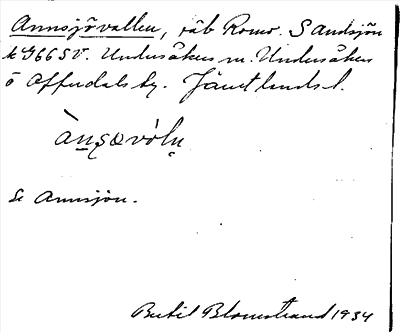 Annsjövallen, säb Romr. S Andsjön
k 966 SV. Undersåkers sn. Undersåkers
ö Offerdals by. Jämtlands l.
Se Annsjön.
Bertil Blomstrand 1934